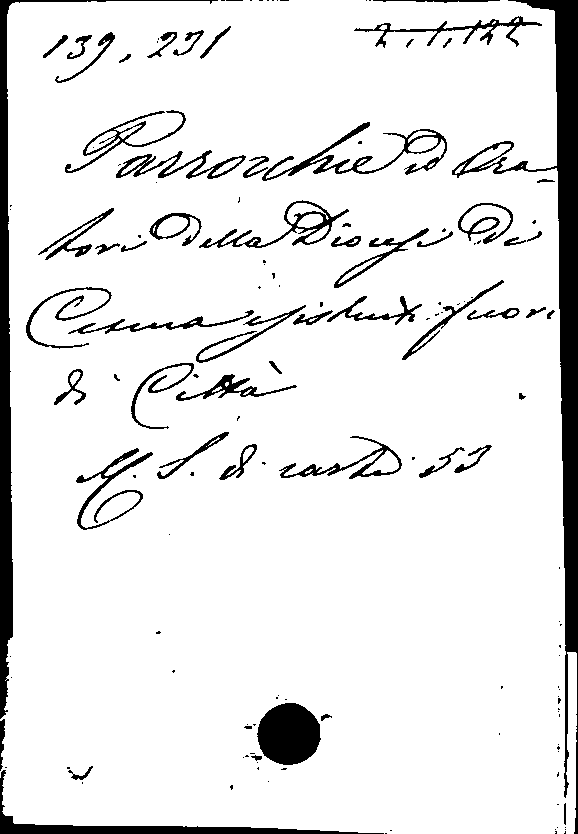 139, 231 2, 1, 122
Parrocchie ed Ora-
tori della Diocesi di
Cesena esistenti fuori
di Città
M. S. di carte 53